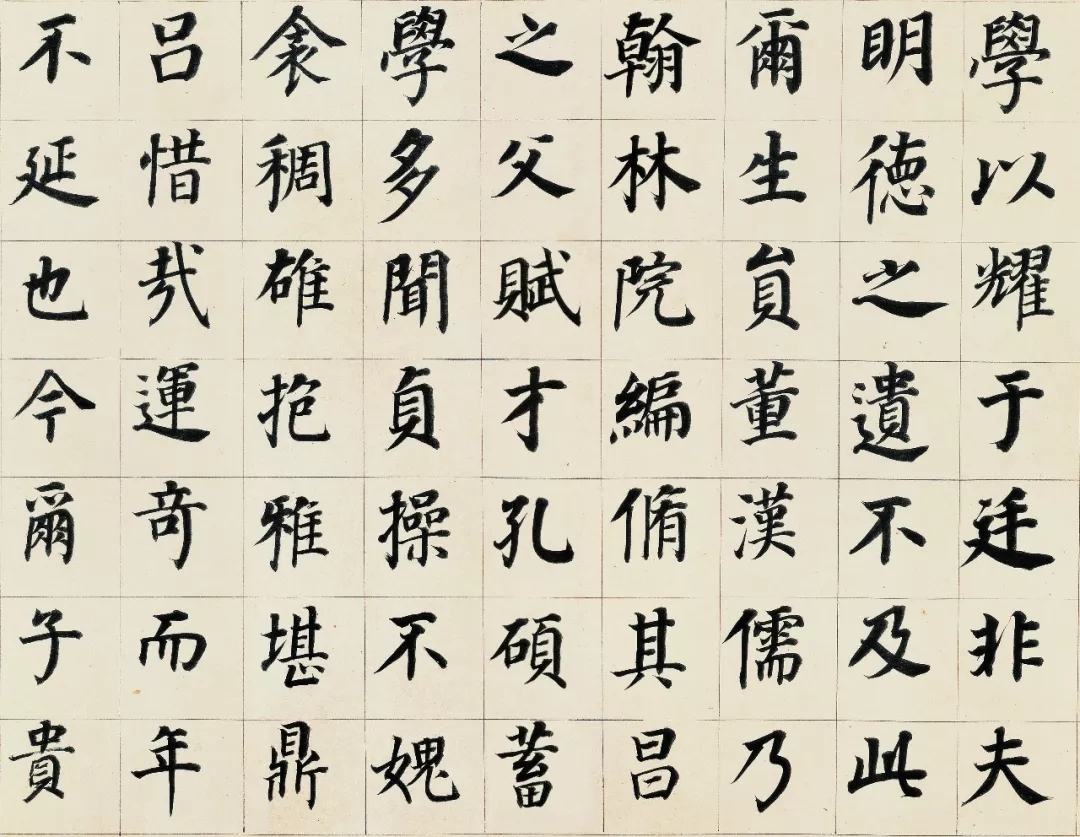 學以耀于廷非夫
明德之遺不及此
爾生員董漢儒乃
翰林院編脩其昌
之父賦才孔碩蓄
學多聞貞操不媿
衾稠雄抱雅堪鼎
呂惜哉運奇而年
不延也今爾子貴